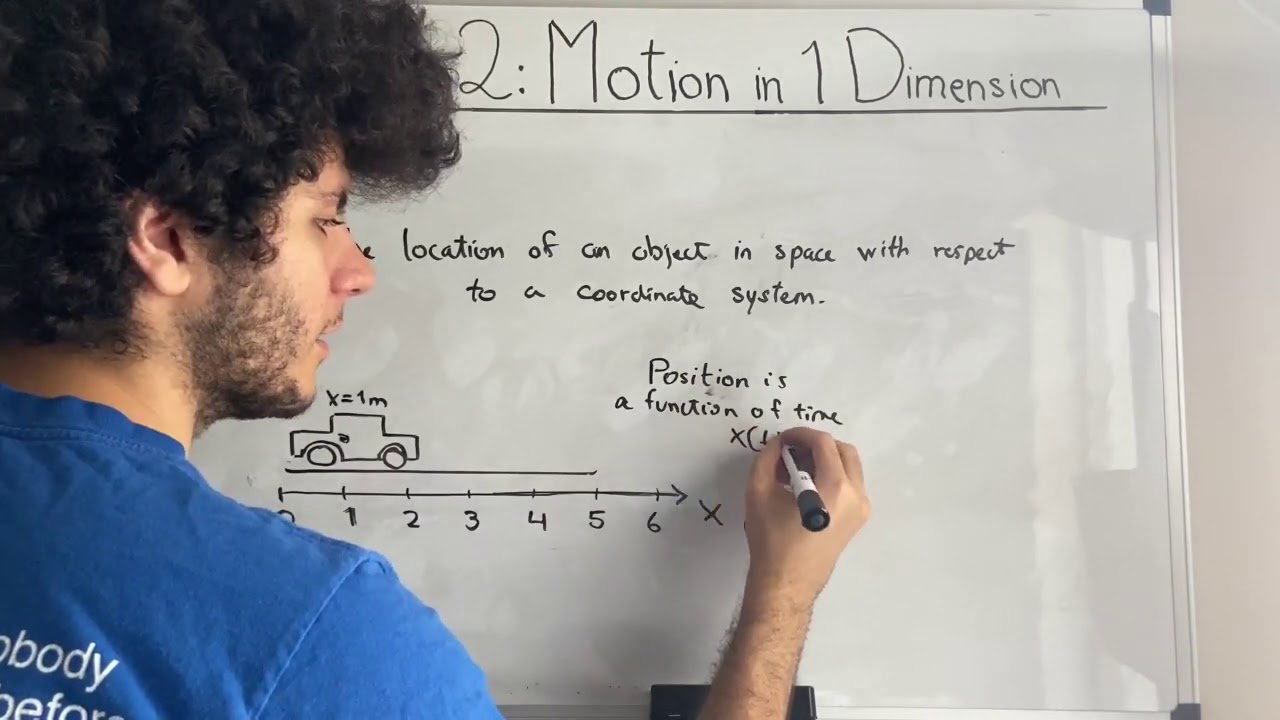 2: Motion in 1 Dimension
location of an object in space with respect
to a coordinate system.
Position is
a function of time
x(
x=1m
1 2 3 4 5 6 X
obody
before